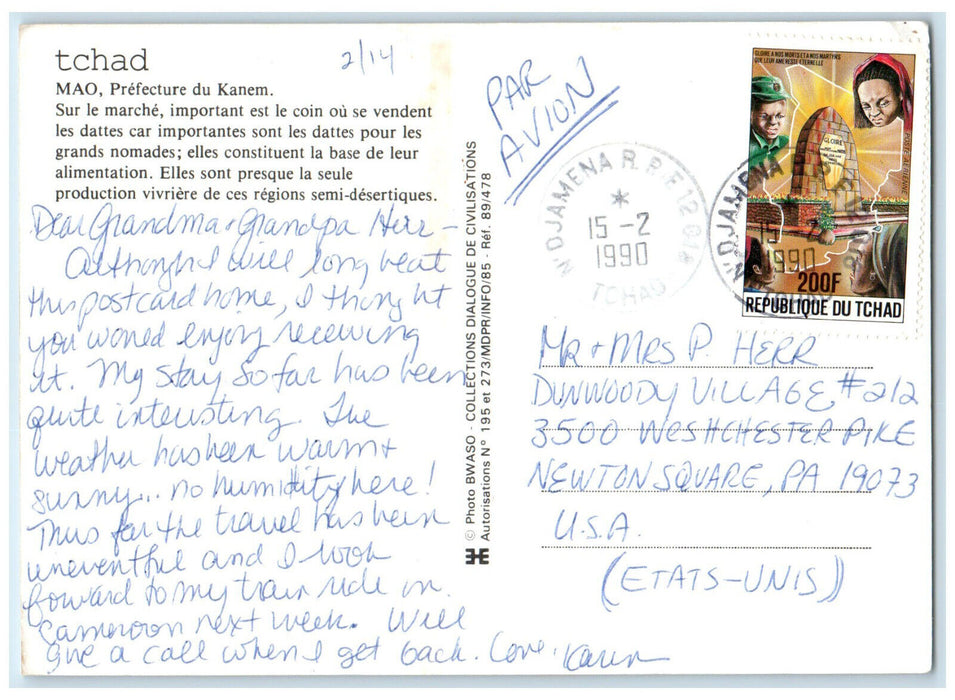 tchad
2/14
MAO, Préfecture du Kanem.
Sur le marché, important est le coin où se vendent
les dattes car importantes sont les dattes pour les
grands nomades; elles constituent la base de leur
alimentation. Elles sont presque la seule
production vivrière de ces régions semi-désertiques.
Dear Grandma + Grandpa Herr -
Although I will long beat
this postcard home, I thought
you would enjoy receiving
it. My stay so far has been
quite interesting. The
weather has been warm +
sunny... no humidity here!
Thus far the travel has been
uneventful and I look
forward to my train ride in
Cameroon next week. Will
give a call when I get back. Love, Karen
© Photo BWASO - COLLECTIONS DIALOGUE DE CIVILISATIONS
Autorisations N° 195 et 273/MDPR/INFO/85 - Réf. 89/478
PAR
AVION
N'DJAMENA R.P.
15-2
1990
TCHAD
GLOIRE A NOS MORTS ET A NOS MARTYRS
QUE LEUR AME RESTE ETERNELLE
GLOIRE
POSTE AERIENNE
N'DJAMENA
15 2
1990
200F
REPUBLIQUE DU TCHAD
MR + MRS P. HERR
DUNWOODY VILLAGE, #212
3500 WESHCHESTER PIKE
NEWTON SQUARE, PA 19073
U.S.A.
(ETATS-UNIS)